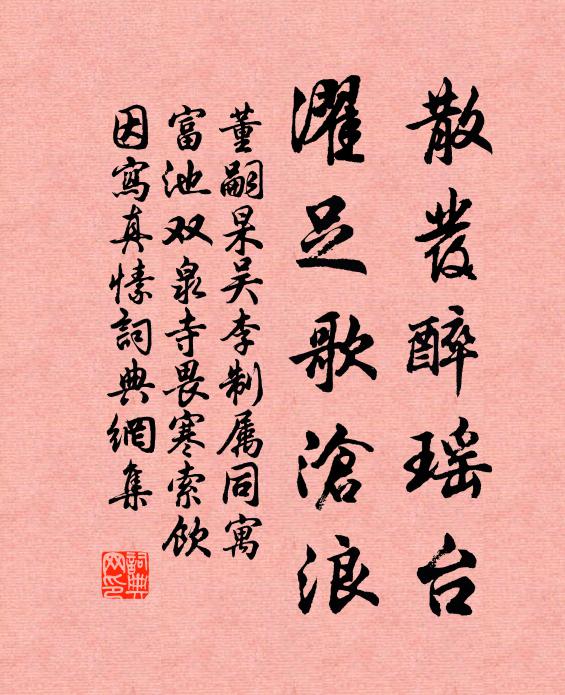 散發醉瑶台
濯足歌滄浪
董嗣杲吴李制属同寓
富池双泉寺畏寒索飲
因寫真愫詞典網集
詞典网印